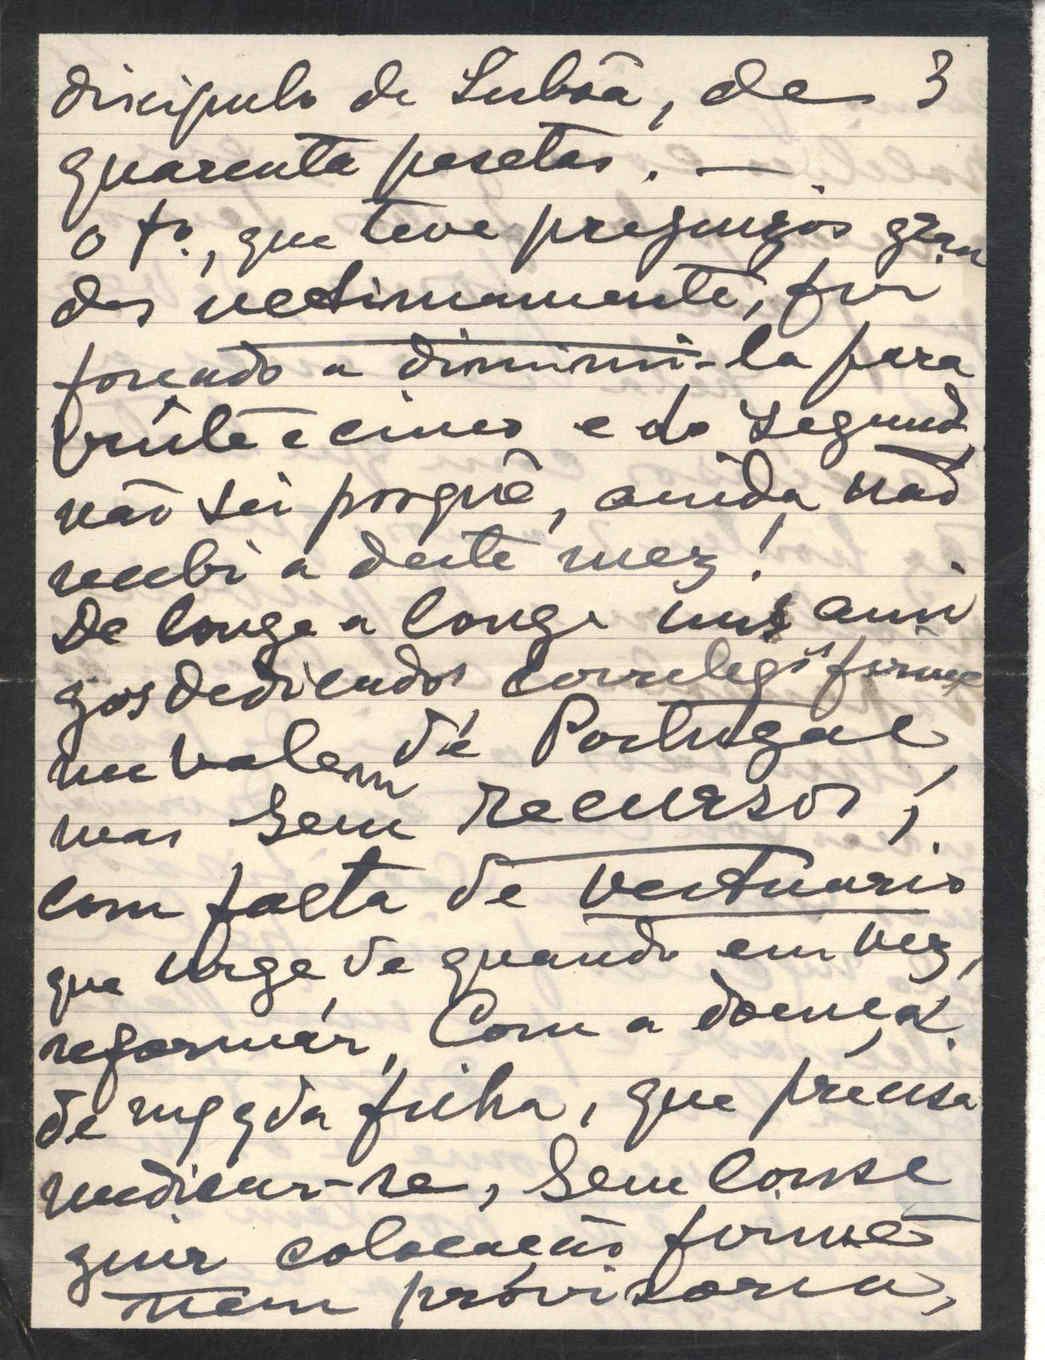 discipulo de Lisbôa, de 3
quarenta pesetas. —
O 1º., que teve prejuizos gran
des ultimamente, foi
forçado a diminui-la para
vinte e cinco e do segundo,
não sei porquê, ainda não
recebi a deste mez!
De longe a longe meus ami
gos dedicados correlegºs firmes
me valem de Portugal,
mas sem recursos;
com falta de vestuario
que urge de quando em vez,
reformár, Com a doença
de minha filha, que precisa
medicar-se, sem conse
guir colocação firme
nem provisoria,